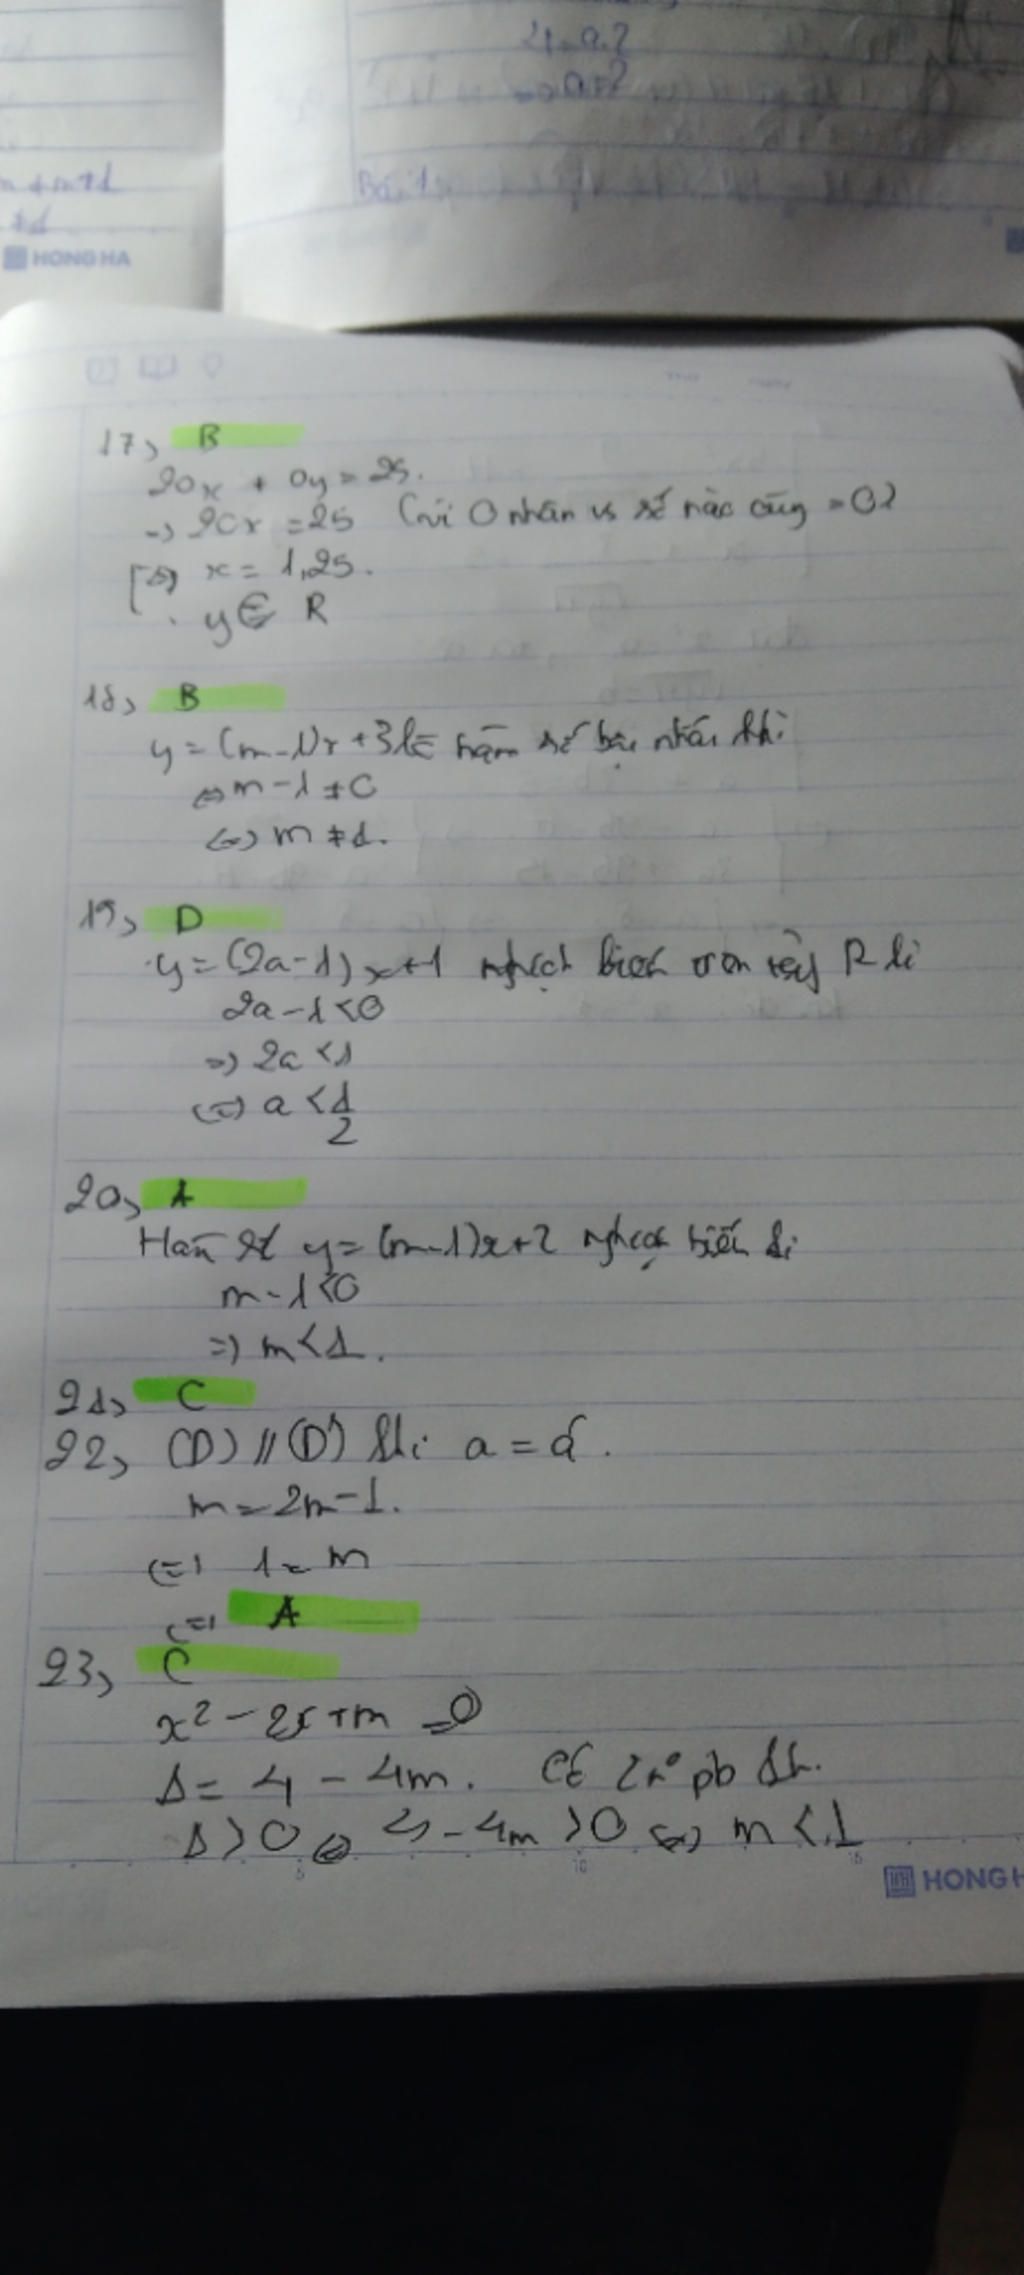 4.a.2
Bài 1
HONG HA
17, B
20x + 0y = 25.
-> 20x = 25 (vì 0 nhân vs số nào cũng = 0)
x = 1,25.
y ∈ R
18, B
y = (m-1)x + 3 là hàm số bậc nhất khi
<=> m - 1 ≠ 0
<=> m ≠ 1.
19, D
y = (2a-1)x+1 nghịch biến trên tập R khi
2a - 1 < 0
=> 2a < 1
<=> a < 1/2
20, A
Hàm số y = (m-1)x+2 nghịch biến khi
m - 1 < 0
=> m < 1.
21, C
22, (D) // (D') khi a = a'.
m = 2m - 1.
<=> 1 = m
<=> A
23, C
x² - 2x + m = 0
Δ = 4 - 4m. Có 2 n° pb kh.
Δ > 0 <=> 4 - 4m > 0 <=> m < 1
5 10 15
HONG H